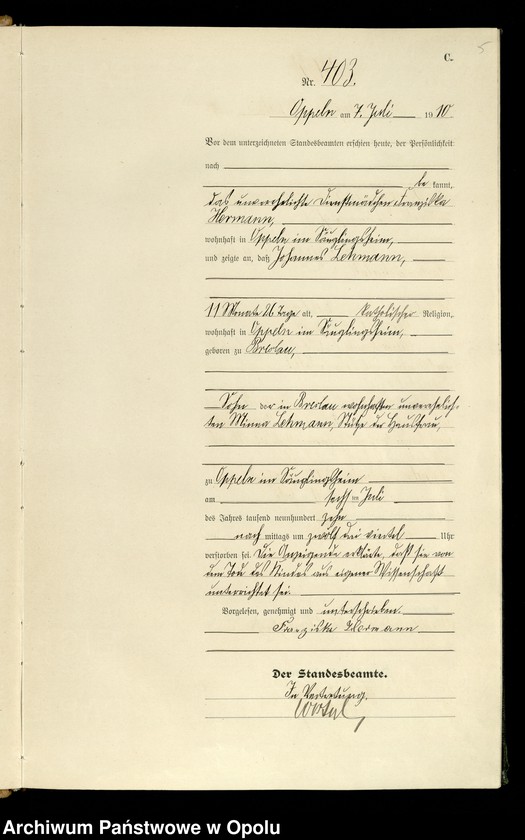 5
C.
Nr. 403.
Oppeln am 7. Juli 1910
Vor dem unterzeichneten Standesbeamten erschien heute, der Persönlichkeit
nach
be kannt,
das unverehelichte Dienstmädchen Franziska
Hermann,
wohnhaft in Oppeln im Säuglingsheim,
und zeigte an, daß Johannes Lehmann,
11 Monate 26 Tage alt, katholischer Religion,
wohnhaft in Oppeln im Säuglingsheim,
geboren zu Breslau,
Sohn der in Breslau wohnhaften unverehelich-
ten Minna Lehmann, Stütze der Hausfrau,
zu Oppeln im Säuglingsheim
am sechs ten Juli
des Jahres tausend neunhundert zehn
nach mittags um zwölf drei viertel Uhr
verstorben sei. Die Anzeigende erklärte, daß sie von
dem Tod des Kindes aus eigener Wissenschaft
unterrichtet sei.
Vorgelesen, genehmigt und unterschrieben.
Franziska Hermann
Der Standesbeamte.
In Vertretung.
Archiwum Państwowe w Opolu